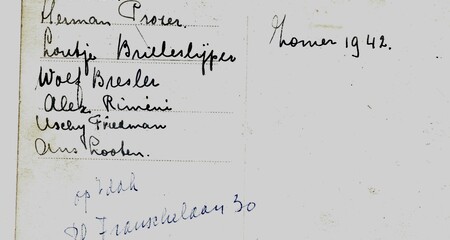 Herman Proser.
Loutje Brilleslijper
Wolf Bresler
Alex Rimini
Uschy Friedman
Ans Looten.
Zomer 1942.
op 't dak
Pl. Franschelaan 30